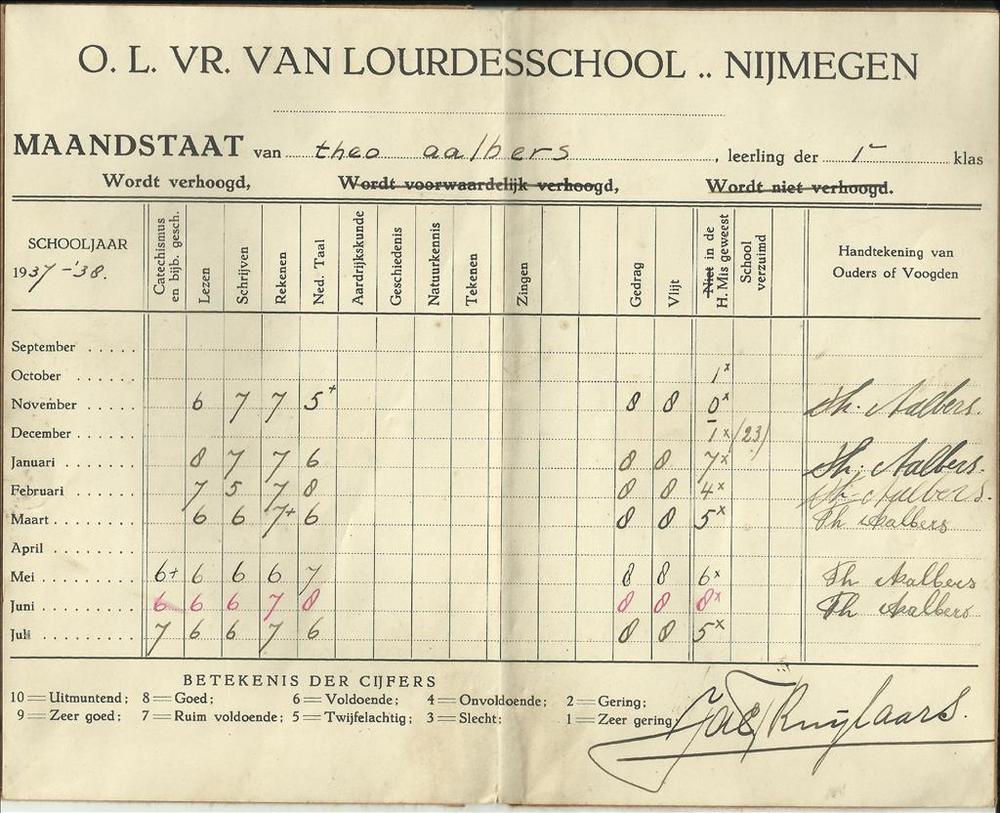 O. L. VR. VAN LOURDESSCHOOL .. NIJMEGEN
MAANDSTAAT van theo aalbers, leerling der 1e klas
Wordt verhoogd, Wordt voorwaardelijk verhoogd, Wordt niet verhoogd.
SCHOOLJAAR 1937-'38. Catechismus en bijb. gesch. Lezen Schrijven Rekenen Ned. Taal Aardrijkskunde Geschiedenis Natuurkennis Tekenen Zingen Gedrag Vlijt Niet in de H. Mis geweest School verzuimd Handtekening van Ouders of Voogden
September .....
October ...... 1x
November ..... 6 7 7 5+ 8 8 0x Th. Aalbers.
December ..... 1x (23)
Januari ...... 8 7 7 6 8 8 7x Th. Aalbers.
Februari ..... 7 5 7 8 8 8 4x Th. Aalbers.
Maart ........ 6 6 7+ 6 8 8 5x Th Aalbers
April ........
Mei ......... 6+ 6 6 6 7 8 8 6x Th Aalbers
Juni ........ 6 6 6 7 8 8 8 8x Th Aalbers
Juli ........ 7 6 6 7 6 8 8 5x
BETEKENIS DER CIJFERS
10 = Uitmuntend; 8 = Goed; 6 = Voldoende; 4 = Onvoldoende; 2 = Gering;
9 = Zeer goed; 7 = Ruim voldoende; 5 = Twijfelachtig; 3 = Slecht; 1 = Zeer gering